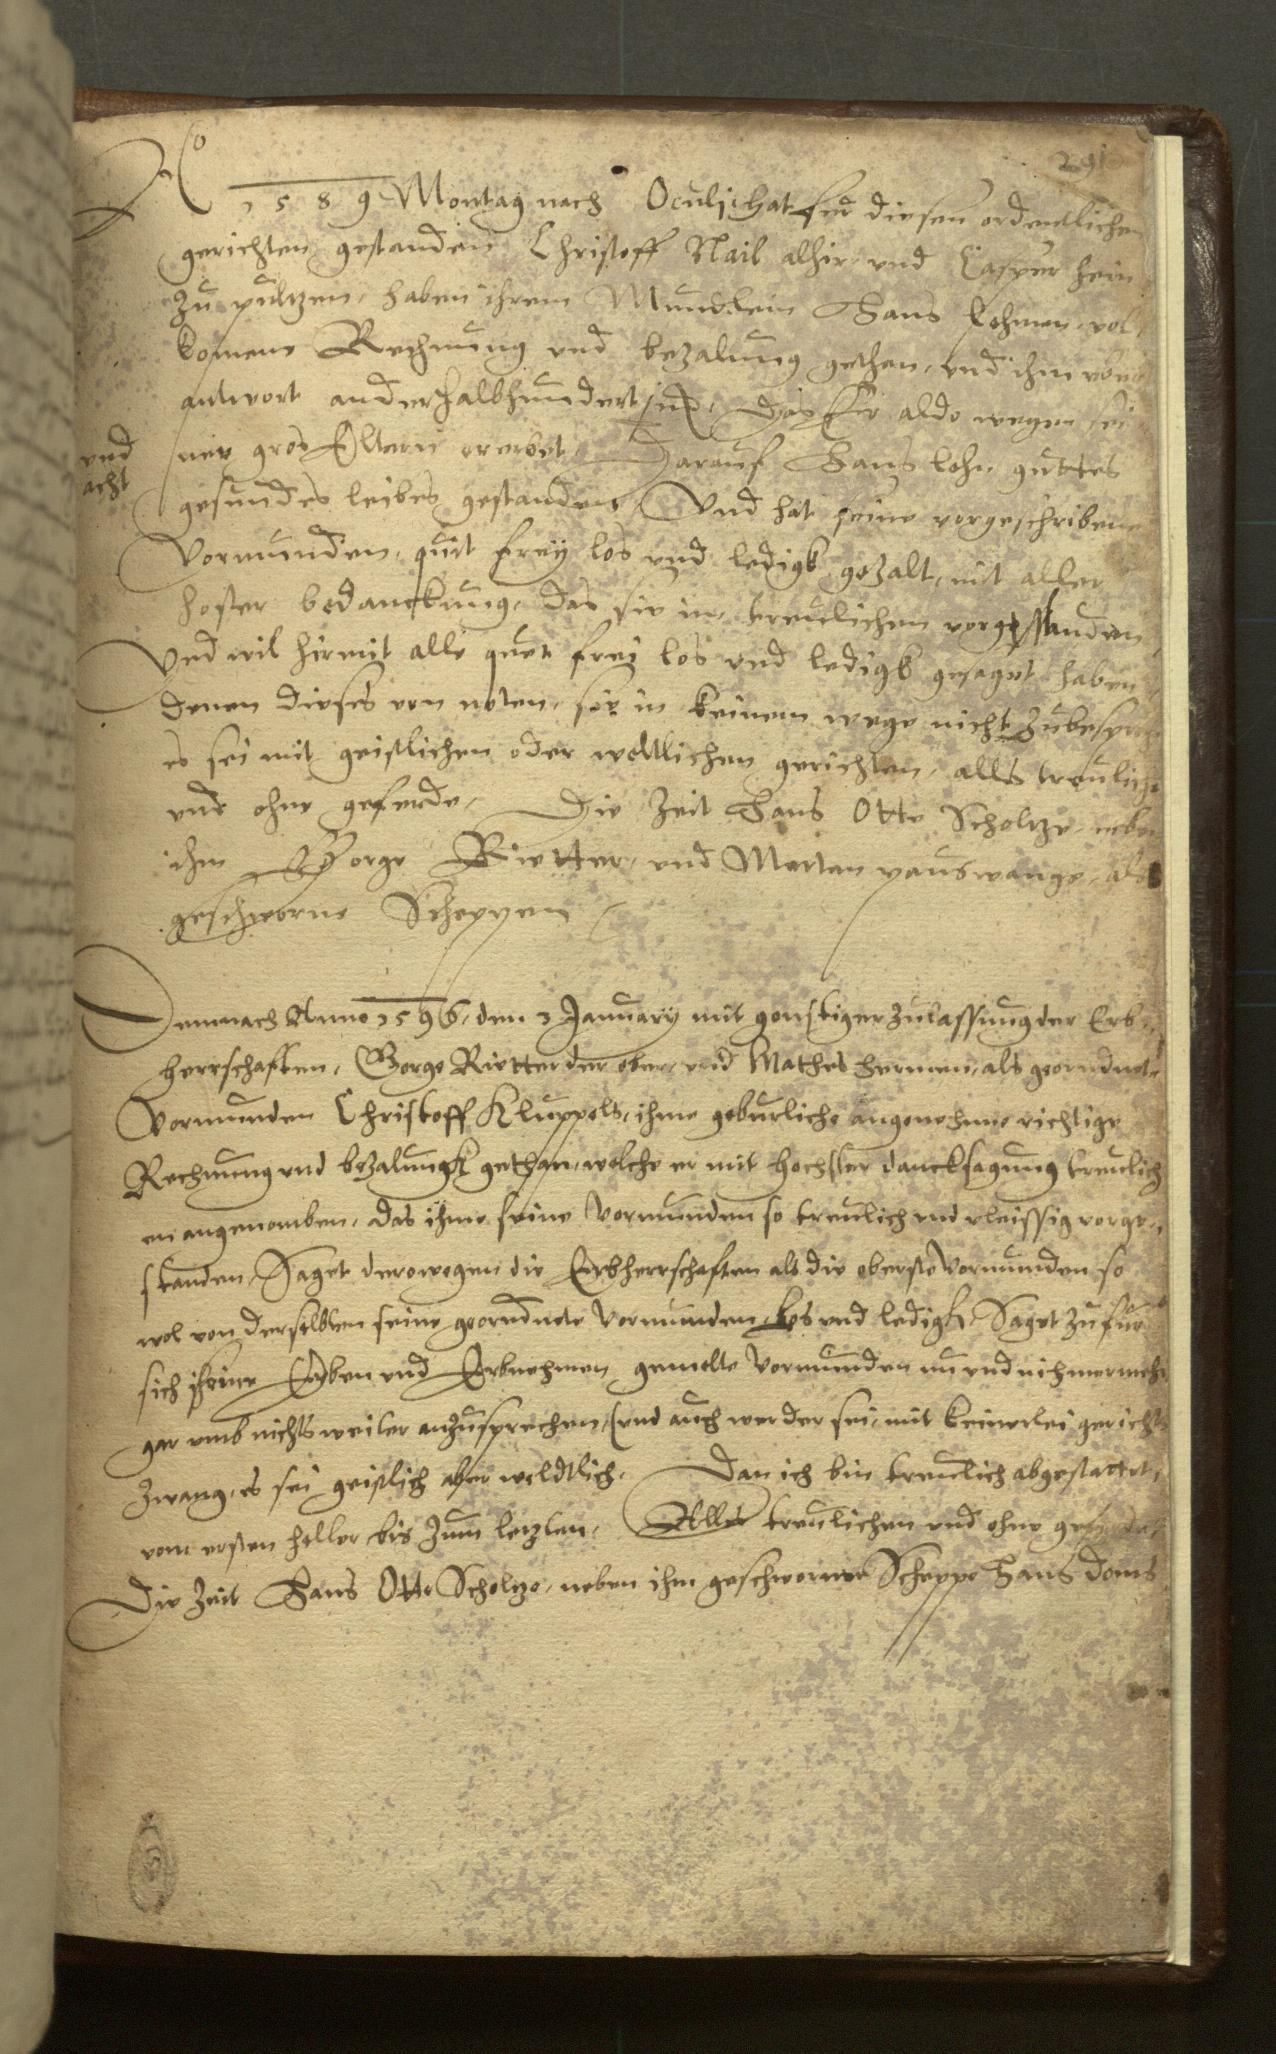 291
Ao
1589 Montag nach Oculi hat für diesen ordentlichen
gerichten gestanden Christoff Nail alhir, und Casper hein
zu pultzen, haben ihrem Mundlein Hans Lohmen, vol
komene Rechnung und bezalung gethan, und ihm uber
antwort anderhalbhundert das Er aldo wegen sei
und acht
ner gros Eltern ererbet, Darauf Hans Lohn guttes
gesundes leibes gestanden, Und hat seine vorgeschribene
Vormunden, quit frey los und ledigk gezalt, mit aller
hoster bedanckung, das sie im, treulichen vorgestanden
Und wil hirmit alle quit frei los und ledigk gesaget haben
denen dieses von noten, sie in keinem wege nicht zubesprech
es sei mit geistlichen oder weltlichen gerichten, alls treulich
und ohne geferde, Die Zeit Hans Otto Scholtze, neben
ihm George Rietter, und Merten pauswange, als
geschworne Scheppen
Demnach Anno 1596, den 3 January mit gonstiger zulassung der Erb
herrschafften, Gorge Rietter der ober, und Mathes hermen, als geordnete
Vormunden Christoff Kluppels, ihme geburliche angenehme richtige
Rechnung und bezalungk gethan, welche er mit hochster dancksagung treulich
en angenomben, das ihme seine Vormunden so treulich und vleissig vorge
standen, Saget derowegen die Erbherrschafften als die oberste Vormunden so
wol von derselbten seine geordnete Vormunden, los und ledigk, Saget zu für
sich seine Erben und Erbnehmen gemelte Vormunden nu und nichmermehr
gar umb nichts weiter anzusprechen, (und auch werder sei, mit keinerlei gerichts
zwang, es sei geistlich aber weldtlich, Dan ich bin treulich abgestattet,
vom ersten heller bis zum letzten, Alles treulichen und ohne geferde,
Die Zeit Hans Otto Scholtze, neben ihm geschworner Scheppe Hans doms